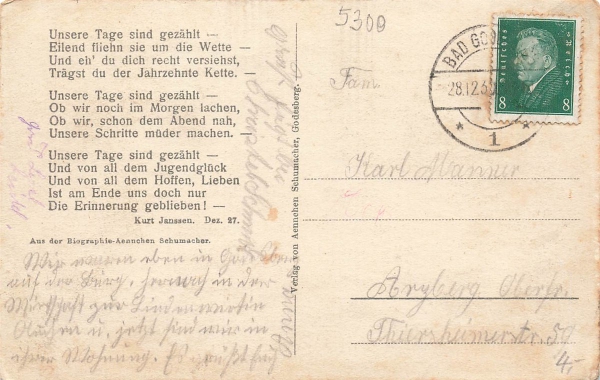 Unsere Tage sind gezählt —
Eilend fliehn sie um die Wette —
Und eh' du dich recht versiehst,
Trägst du der Jahrzehnte Kette. —
Unsere Tage sind gezählt —
Ob wir noch im Morgen lachen,
Ob wir, schon dem Abend nah,
Unsere Schritte müder machen. —
Unsere Tage sind gezählt —
Und von all dem Jugendglück
Und von all dem Hoffen, Lieben
Ist am Ende uns doch nur
Die Erinnerung geblieben! —
Kurt Janssen. Dez. 27.
Aus der Biographie-Aennchen Schumacher.
Wir waren eben in Godesberg
auf der Burg, hernach in der
Wirtschaft zur Lindenwirtin
u. jetzt sind wir in
ihrer Wohnung. Es grüßt Euch
Verlag von Aennchen Schumacher, Godesberg.
5300
BAD GO
28.12.3
* 1 *
Deutsches Reich
8 8
Fam.
Karl Manner
Arzberg Oberfr.
Thiersheimerstr. 50
4,-